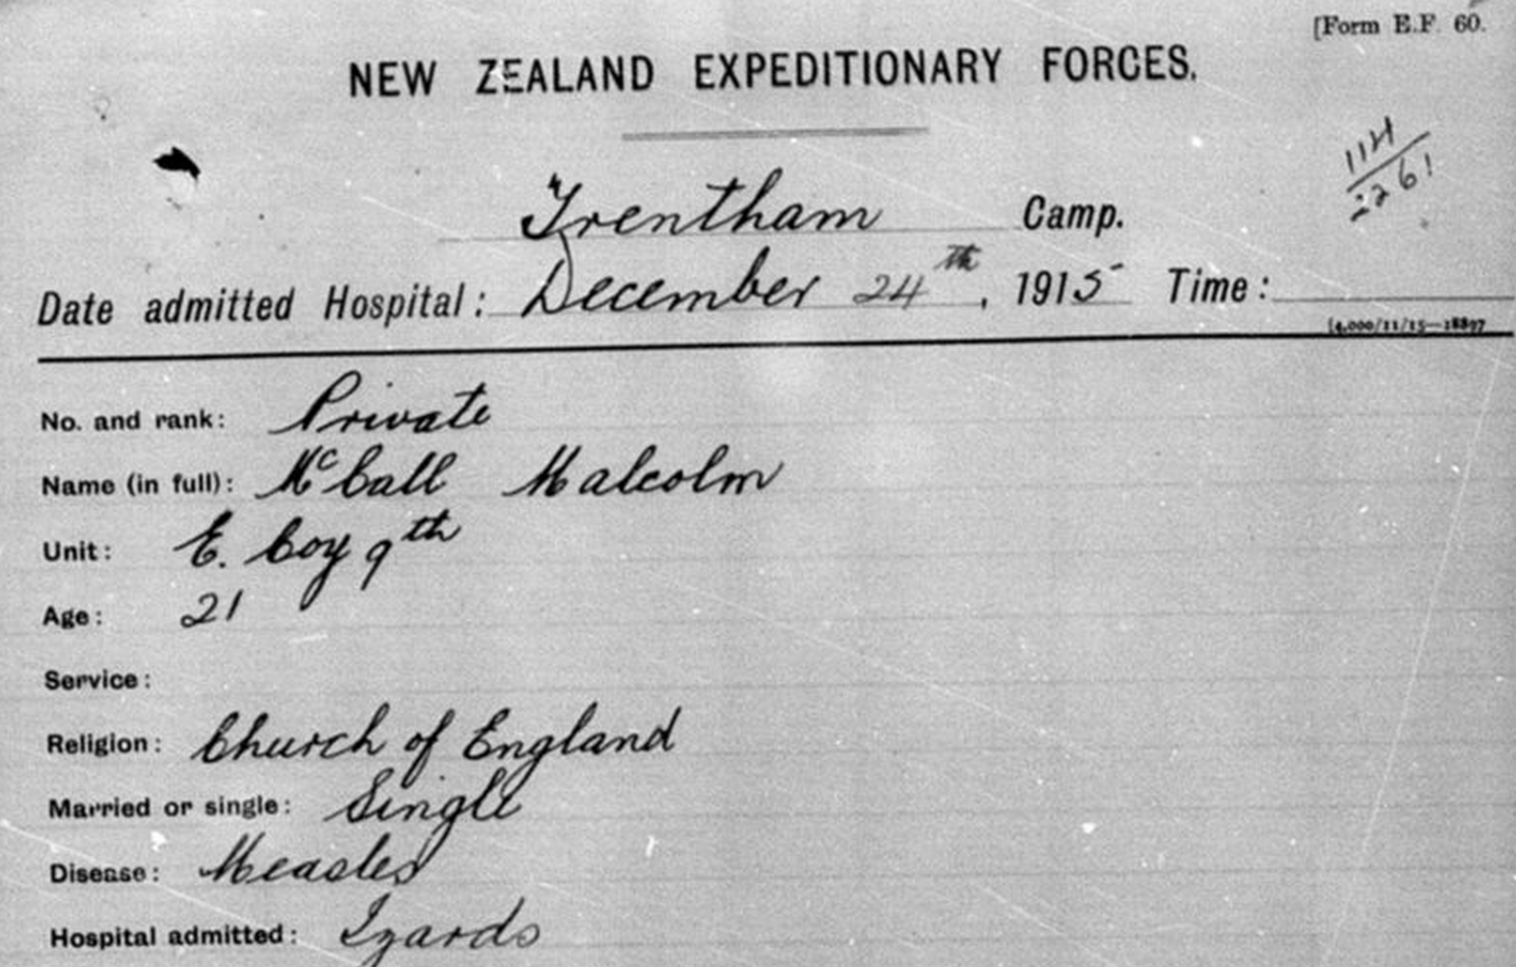 [Form E.F. 60.
NEW ZEALAND EXPEDITIONARY FORCES.
114
2261
Trentham Camp.
Date admitted Hospital: December 24th, 1915 Time:
[4,000/11/15—18897
No. and rank: Private
Name (in full): McCall Malcolm
Unit: E. Coy 9th
Age: 21
Service:
Religion: Church of England
Married or single: Single
Disease: Measles
Hospital admitted: Izards